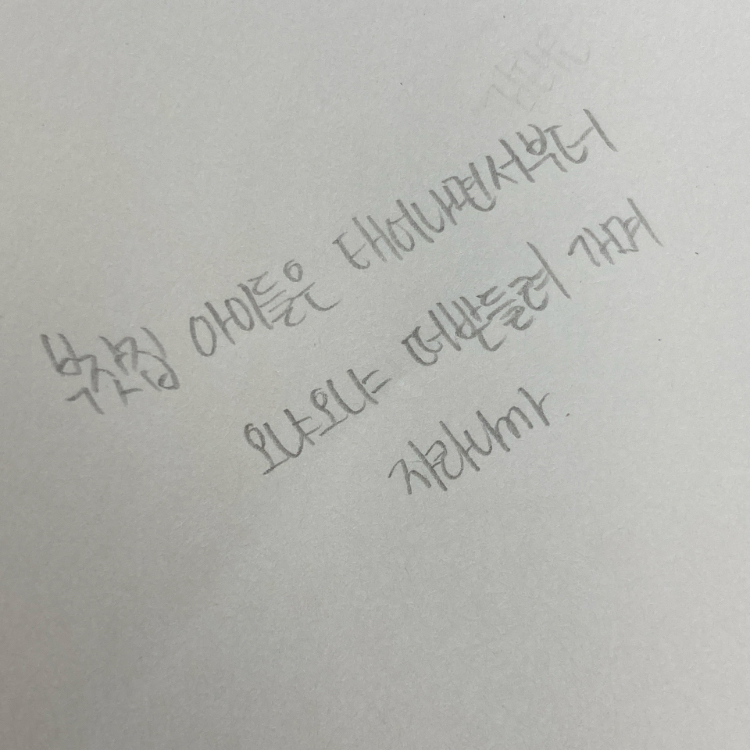 부잣집 아이들은 태어나면서부터
오냐오냐 떠받들려 가며
자라니까